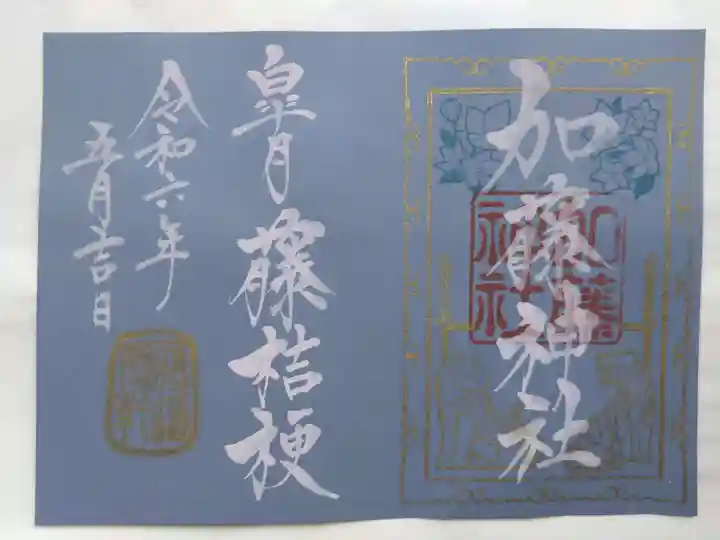 加藤神社
加藤
神社
皐月
藤桔梗
令和六年
五月吉日